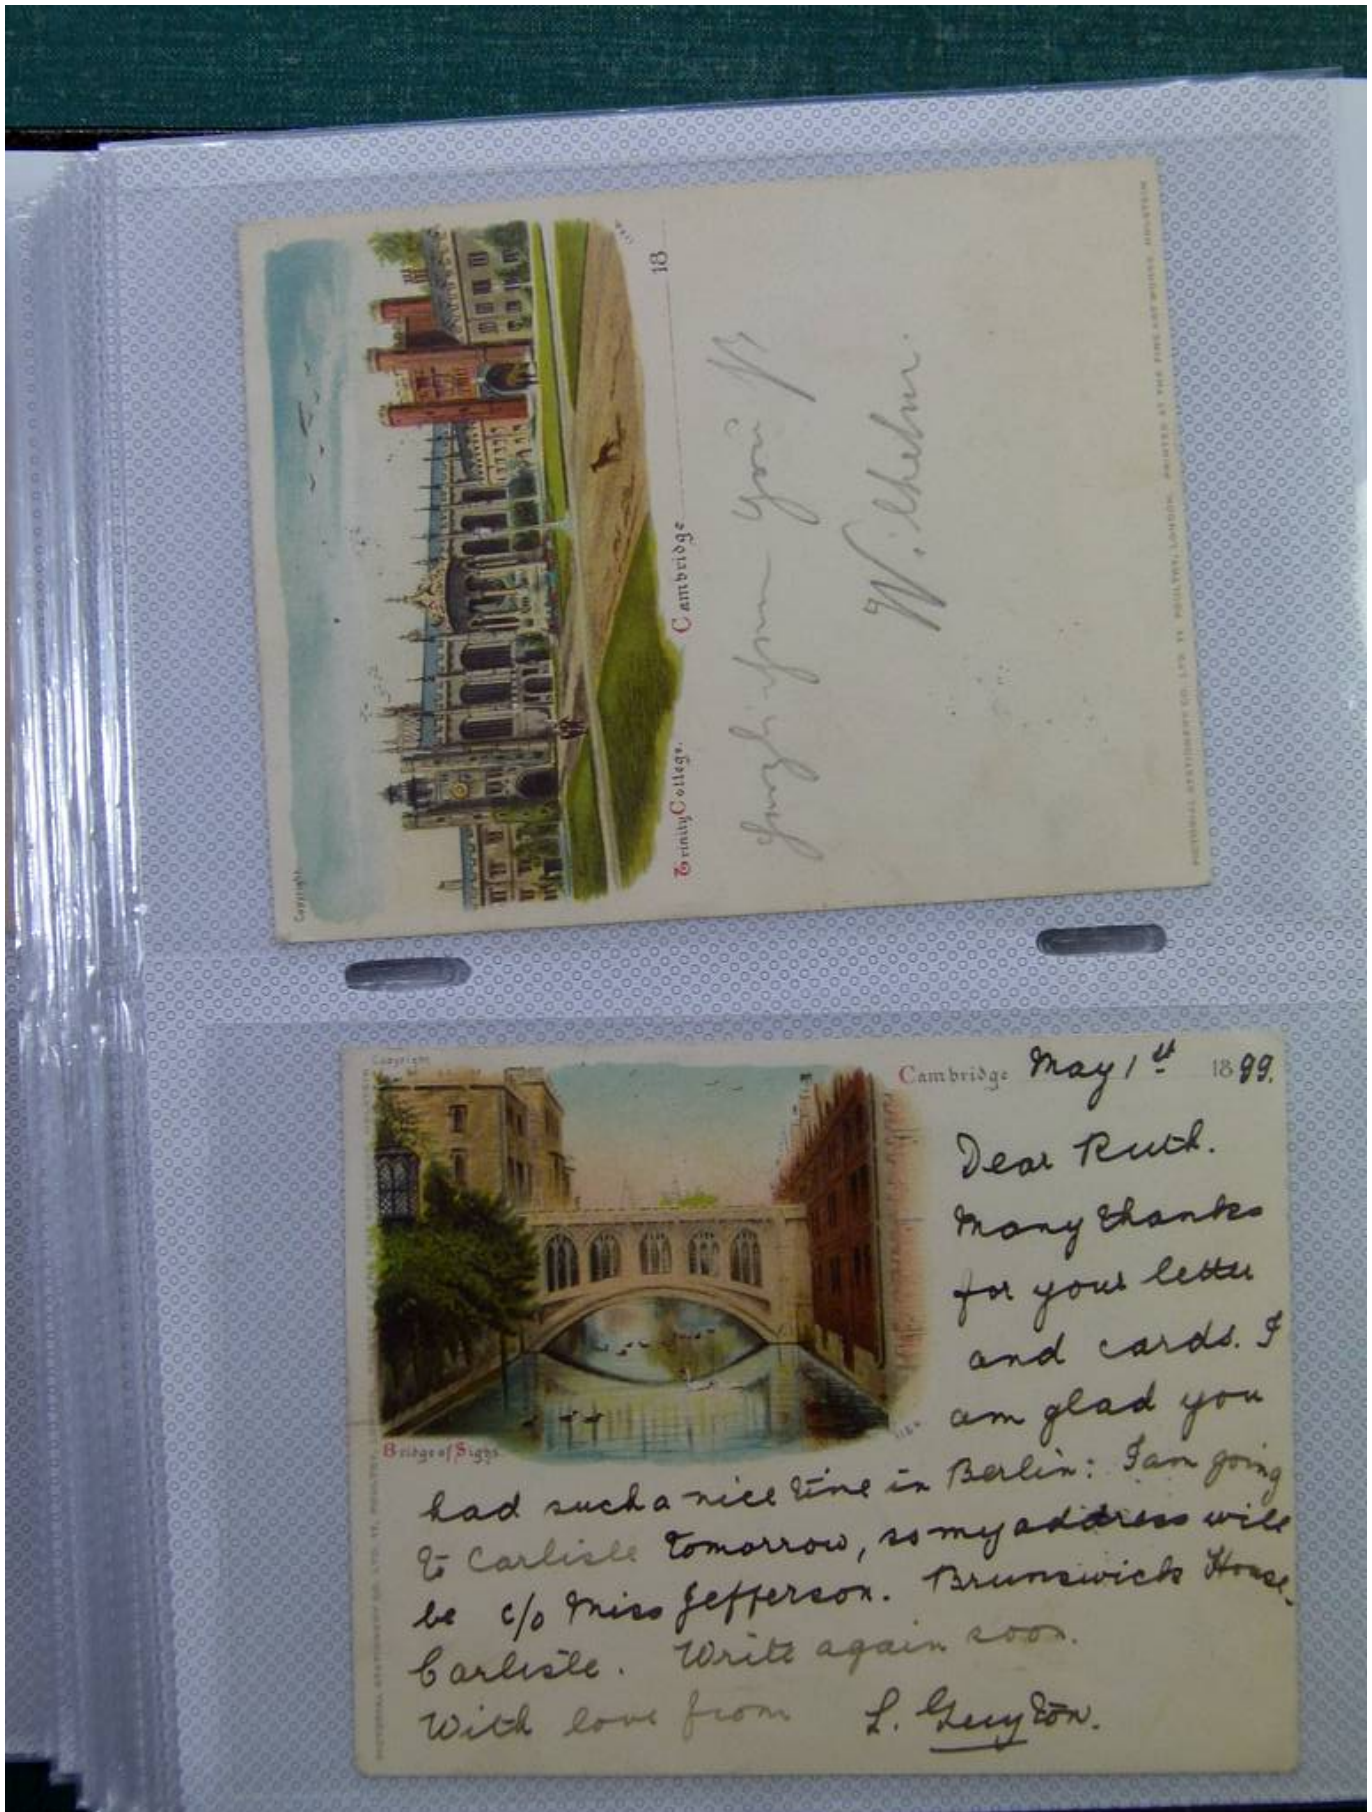 Copyright.
Trinity College.
Cambridge 18
from your
Wilhelm.
PICTORIAL STATIONERY CO. LTD. 11 POULTRY, LONDON. PRINTED AT THE FINE ART WORKS, HOLSTEIN
Copyright
Cambridge May 1st 1899.
Dear Ruth.
Many thanks
for your letter
and cards. I
am glad you
Bridge of Sighs
had such a nice time in Berlin: I am going
to Carlisle tomorrow, so my address will
be c/o Miss Jefferson. Brunswick House,
Carlisle. Write again soon.
With love from L. Guyton.
PICTORIAL STATIONERY CO. LTD. 11, POULTRY,